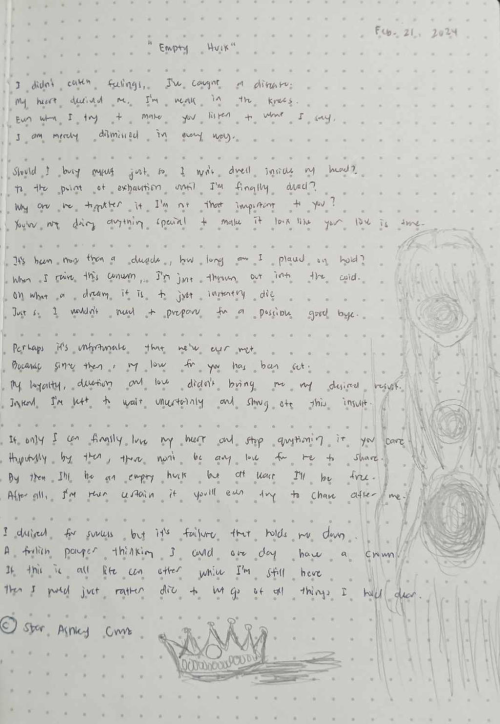 Feb. 21. 2024
"Empty Husk"
I didn't catch feelings, I've caught a disease.
My heart denied me. I'm weak in the knees.
Even when I try to make you listen to what I say,
I am merely dismissed in every way.
Should I bury myself just so I won't dwell inside my head?
To the point of exhaustion until I'm finally dead?
Why are we together if I'm not that important to you?
You're not doing anything special to make it look like your love is true.
It's been more than a decade, how long am I placed on hold?
When I raise this concern, I'm just thrown out into the cold.
Oh what a dream, it is to just instantly die
Just so I wouldn't need to prepare for a passing good bye.
Perhaps it's unfortunate that we've ever met.
Because since then, my love for you has been set.
My loyalty, devotion and love didn't bring me my desired result.
Instead, I'm left to wait uncertainly and shrug off this insult.
If only I can finally love my heart and stop questioning if you care.
Hopefully by then, there won't be any love for me to share.
By then I'll be an empty husk but at least I'll be free.
After all, I'm even certain if you'll even try to chase after me.
I desired for success but it's failure that holds me down.
A foolish pauper thinking I could one day have a crown.
If this is all life can offer while I'm still here
Then I would just rather die to let go of all things I hold dear.
© Star Ashley